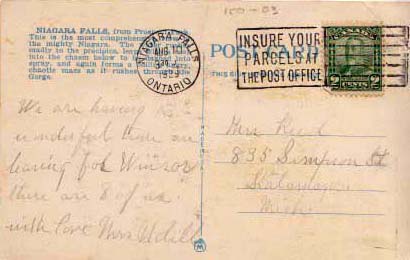 150-03
NIAGARA FALLS, (from Prospect
This is the most comprehensive
the mighty Niagara. The
madly to the precipice, leap
into the chasm below to be
spray, and again forms a
chaotic mass as it rushes through the
Gorge.
POST CARD
NIAGARA FALLS
AUG 10
1929
ONTARIO
INSURE YOUR
PARCELS AT
THE POST OFFICE
CANADA
2 CENTS 2
We are having
wonderful time are
leaving for Winsor
there are 8 of us.
with love Mrs
Mrs
835 Simpson St
Kalamazoo
Mich